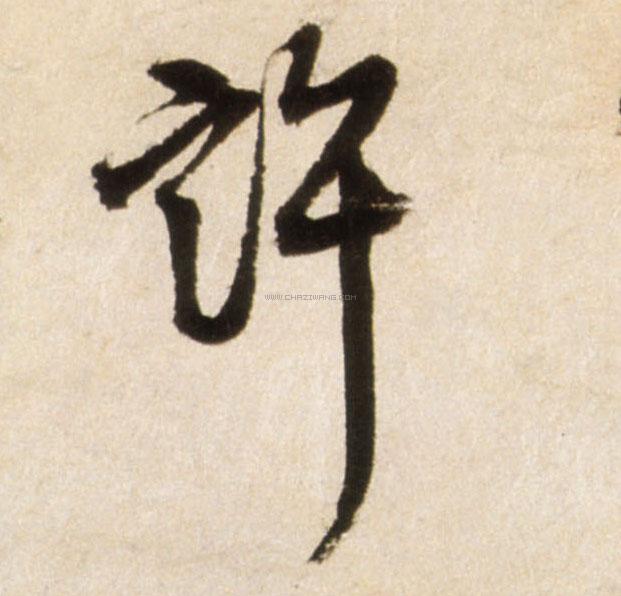 許
WWW.CHAZIWANG.COM